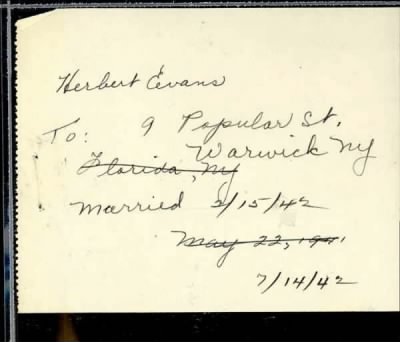 Herbert Evans
To: 9 Popular St.
Warwick NY
Florida, NY
Married 2/15/42
May 22, 1941
7/14/42